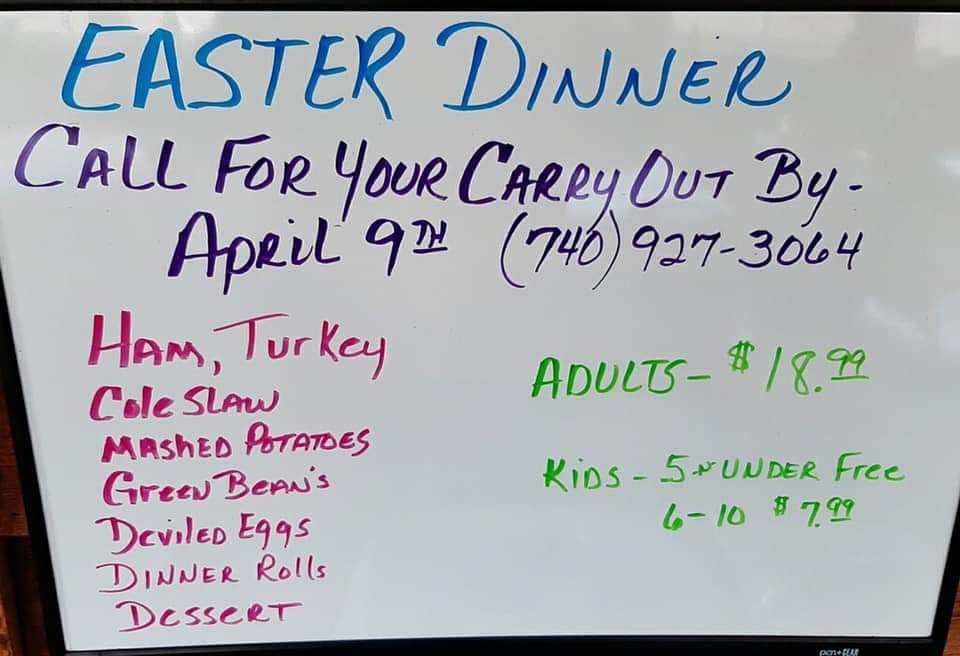 EASTER DINNER
CALL FOR YOUR CARRY OUT BY-
APRIL 9TH (740) 927-3064
HAM, TURKEY
COLE SLAW
MASHED POTATOES
GREEN BEAN'S
DEVILED EGGS
DINNER ROLLS
DESSERT
ADULTS- $18.99
KIDS - 5 N UNDER FREE
6-10 $7.99
pen+GEAR